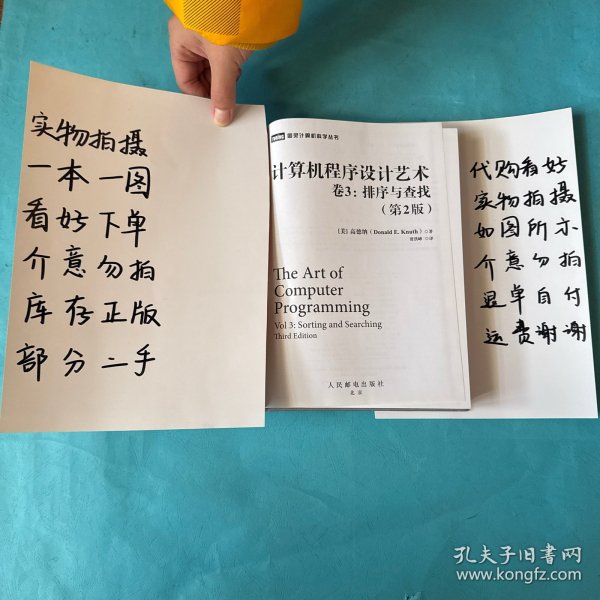 实物拍摄
一本一图
看好下单
介意勿拍
库存正版
部分二手
图灵计算机科学丛书
计算机程序设计艺术
卷3：排序与查找
（第2版）
[美] 高德纳（Donald E. Knuth）著
贾洪峰 译
The Art of
Computer
Programming
Vol 3: Sorting and Searching
Third Edition
人民邮电出版社
北京
代购看好
实物拍摄
如图所示
介意勿拍
退单自付
运费谢谢
孔夫子旧书网
www.kongfz.com